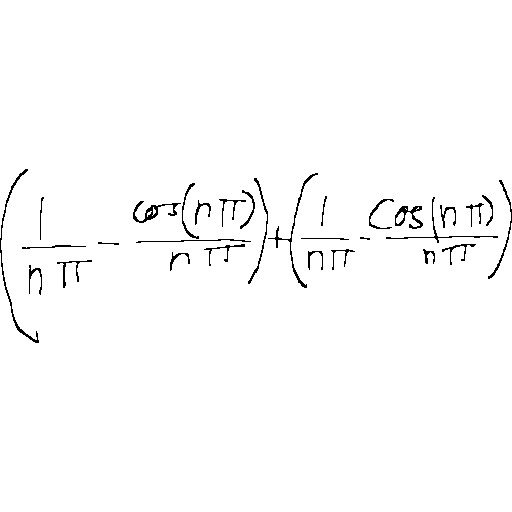 \left(\frac{1}{n\pi}-\frac{\cos(n\pi)}{n\pi}\right)+\left(\frac{1}{n\pi}-\frac{\cos(n\pi)}{n\pi}\right)